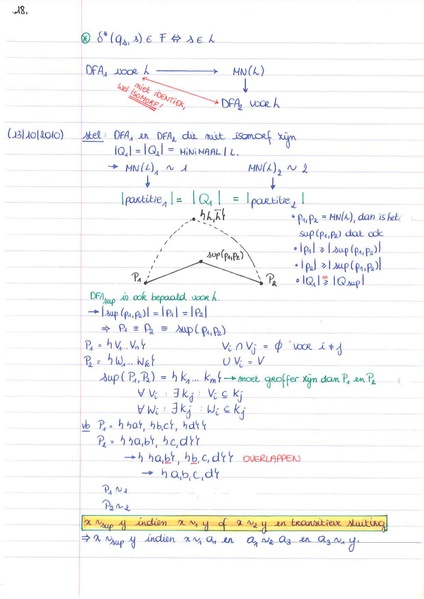 .18.
⊛ δ*(q_s, s) ∈ F ⇔ s ∈ L
DFA₁ voor L → MN(L)
niet IDENTIEK,
wel ISOMORF!
DFA₂ voor L
(13/10/2010) stel: DFA₁ en DFA₂ die niet isomorf zijn
|Q₁| = |Q₂| = MINIMAAL | L.
→ MN(L)₁ ~ 1 MN(L)₂ ~ 2
|partitie₁| = |Q₁| = |partitie₂|
{L, L̄}
sup(p₁,p₂)
P₁ P₂
• p₁,p₂ = MN(L), dan is het
sup(p₁,p₂) dat ook
• |p₁| ≥ |sup(p₁,p₂)|
• |p₂| ≥ |sup(p₁,p₂)|
• |Q₁| ≥ |Qsup|
DFAsup is ook bepaald voor L.
→ |sup(p₁,p₂)| = |P₁| = |P₂|
⇒ P₁ = P₂ = sup(p₁,p₂)
P₁ = {V₁... Vn} Vi ∩ Vj = ∅ voor i ≠ j
P₂ = {W₁... Wk} ∪Vi = V
sup(P₁,P₂) = {K₁... Km} → moet groffer zijn dan P₁ en P₂
∀ Vi : ∃ Kj : Vi ⊆ Kj
∀ Wi : ∃ Kj : Wi ⊆ Kj
vb P₁ = {{a}, {b,c}, {d}}
P₂ = {{a,b}, {c,d}}
→ {{a,b}, {b,c,d}} OVERLAPPEN
→ {a,b,c,d}
P₁ ~1
P₂ ~2
x ~sup y indien x ~₁ y of x ~₂ y en transitieve sluiting
⇒ x ~sup y indien x ~₁ a₁ en a₁ ~₂ a₃ en a₃ ~₁ y.